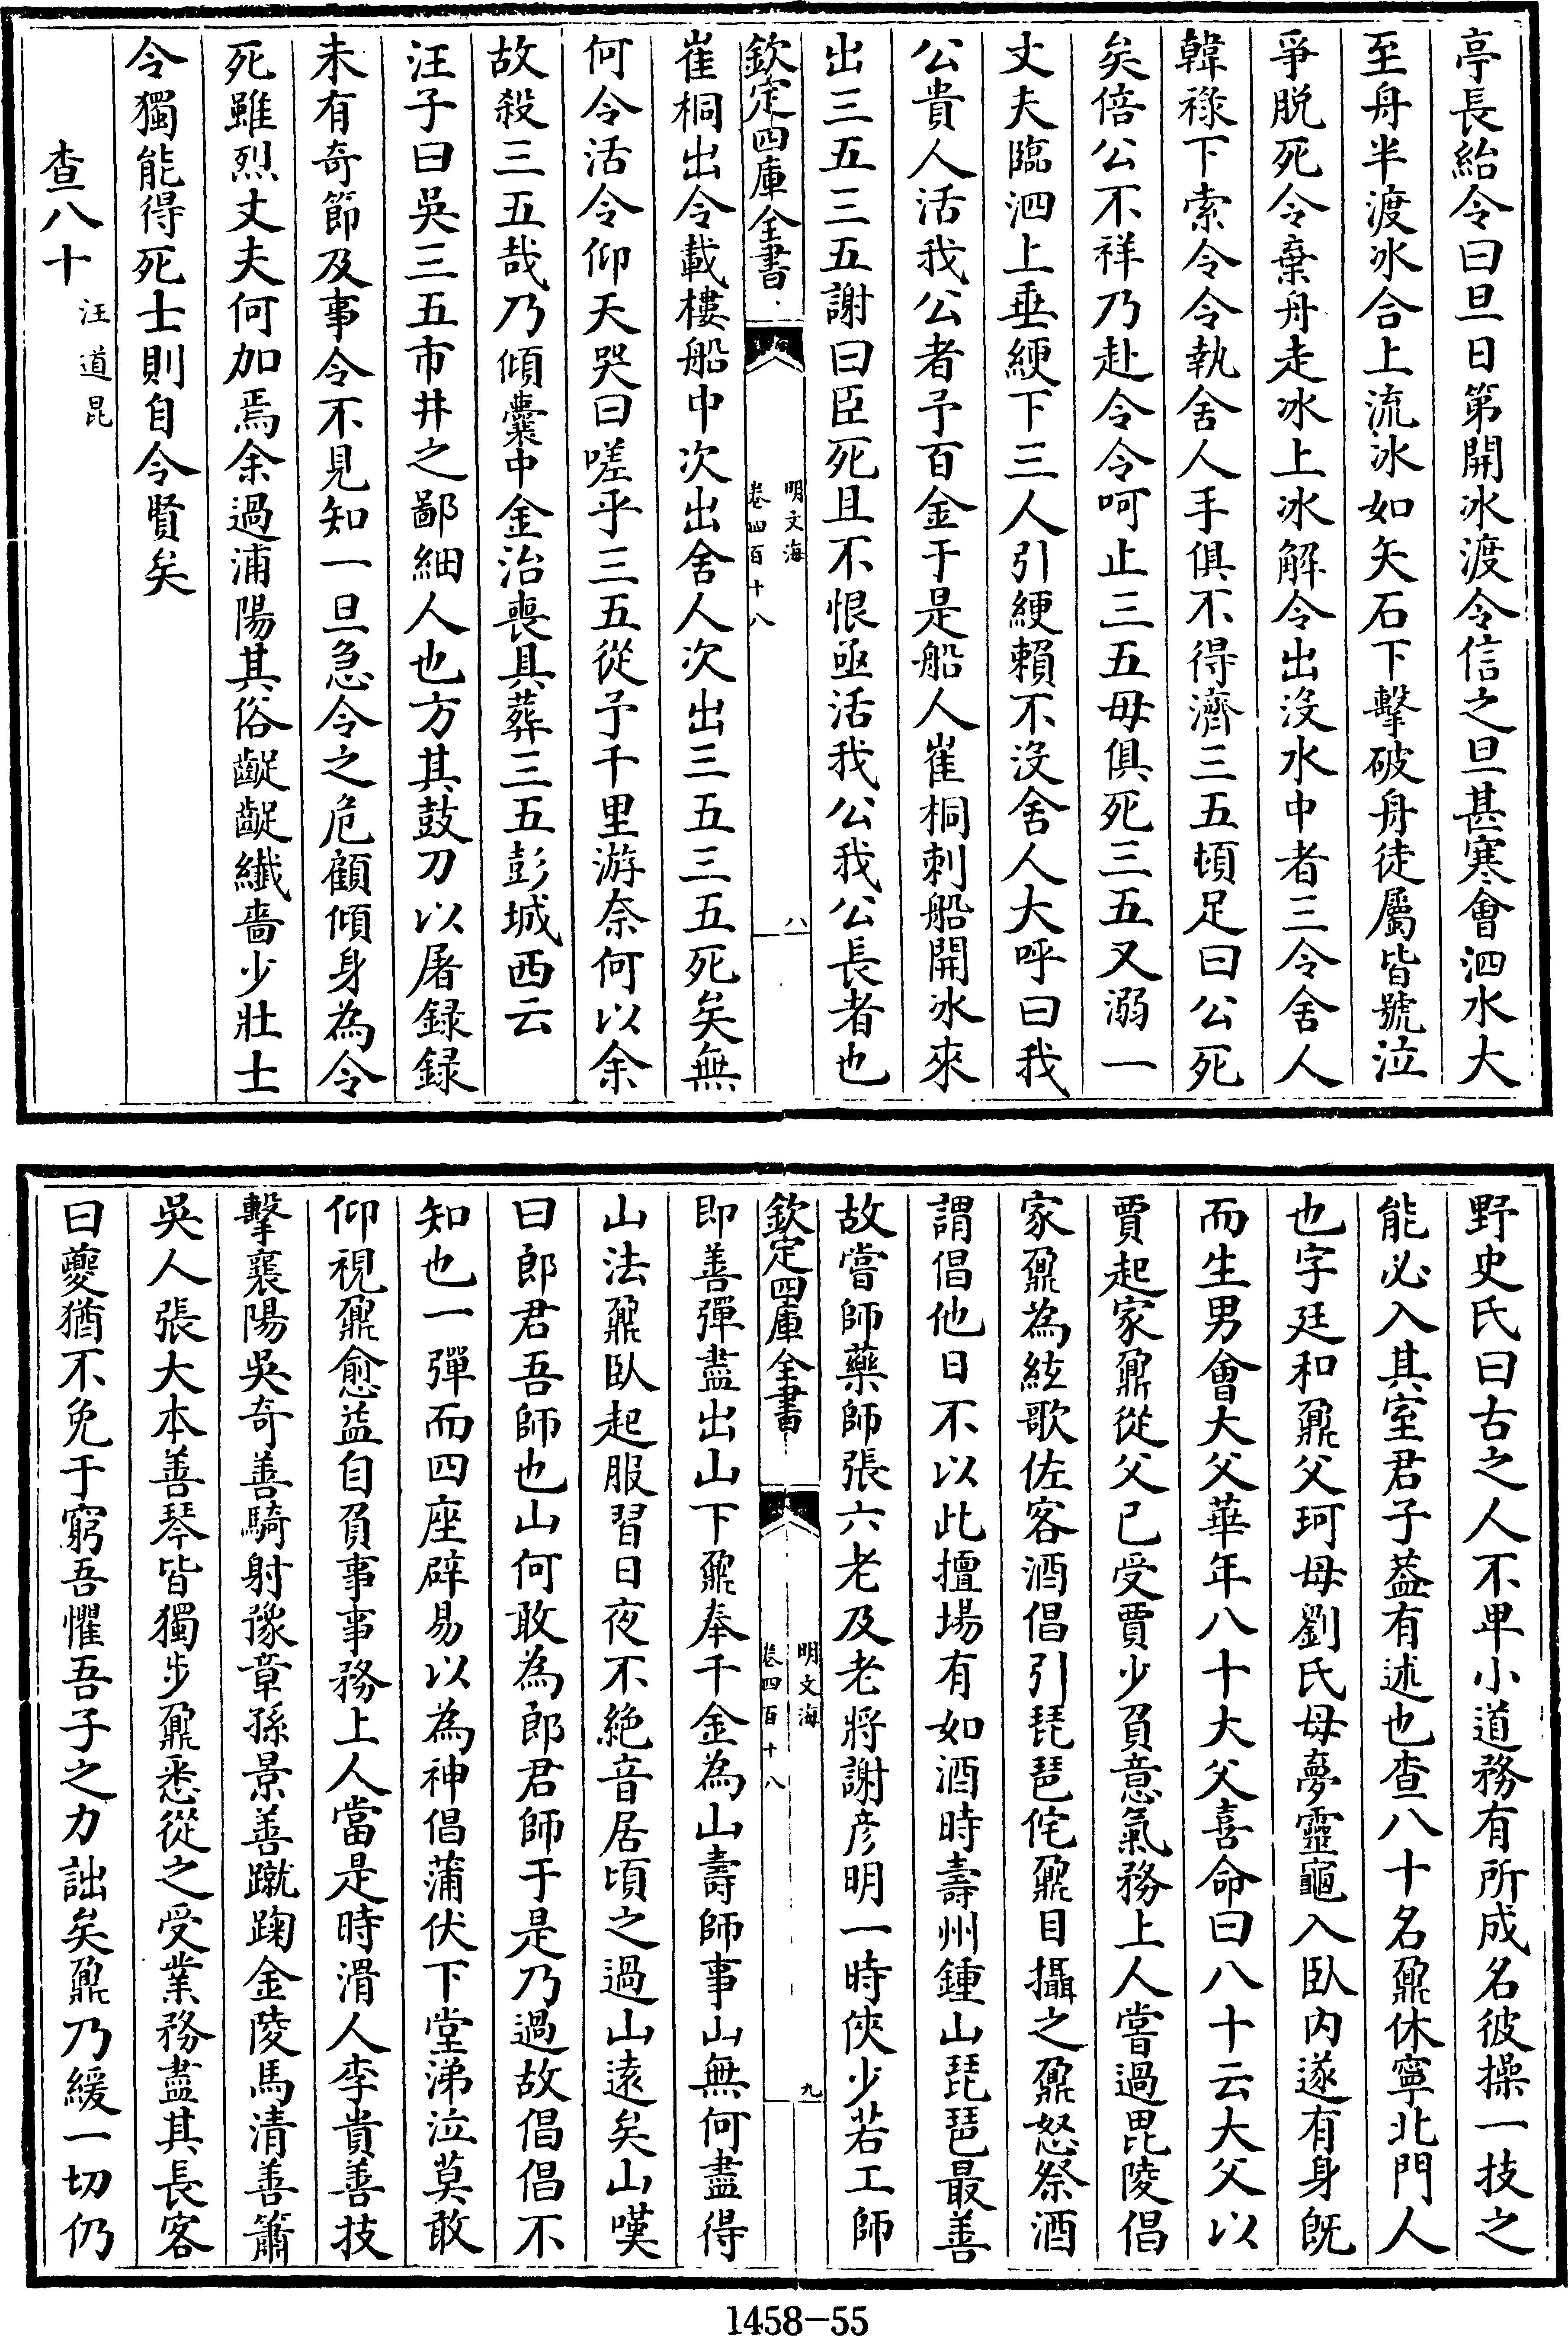 亭長紿令曰旦日第開冰渡令信之旦甚寒會泗水大
至舟半渡冰合上流冰如矢石下擊破舟徒屬皆號泣
爭脫死令棄舟走冰上冰解令出沒水中者三令舍人
韓祿下索令令執舍人手俱不得濟三五頓足曰公死
矣倍公不祥乃赴令令呵止三五毋俱死三五又溺一
丈夫臨泗上垂綆下三人引綆賴不沒舍人大呼曰我
公貴人活我公者予百金于是船人崔桐刺船開冰來
出三五三五謝曰臣死且不恨亟活我公我公長者也
欽定四庫全書
明文海
卷四百十八
八
崔桐出令載樓船中次出舍人次出三五三五死矣無
何令活令仰天哭曰嗟乎三五從予千里游奈何以余
故殺三五哉乃傾囊中金治喪具葬三五彭城西云
汪子曰吳三五市井之鄙細人也方其鼓刀以屠録録
未有奇節及事令不見知一旦急令之危顧傾身為令
死雖烈丈夫何加焉余過浦陽其俗齪齪纖嗇少壯士
令獨能得死士則自令賢矣
查八十 汪道昆
野史氏曰古之人不卑小道務有所成名彼操一技之
能必入其室君子葢有述也查八十名鼐休寧北門人
也字廷和鼐父珂母劉氏母夢靈龜入臥内遂有身旣
而生男會大父華年八十大父喜命曰八十云大父以
賈起家鼐從父已受賈少負意氣務上人嘗過毘陵倡
家鼐為絃歌佐客酒倡引琵琶侘鼐目攝之鼐怒祭酒
謂倡他日不以此擅場有如酒時壽州鍾山琵琶最善
故嘗師藥師張六老及老將謝彦明一時俠少若工師
欽定四庫全書
明文海
卷四百十八
九
即善彈盡出山下鼐奉千金為山壽師事山無何盡得
山法鼐臥起服習日夜不絶音居頃之過山逺矣山嘆
曰郎君吾師也山何敢為郎君師于是乃過故倡倡不
知也一彈而四座辟易以為神倡蒲伏下堂涕泣莫敢
仰視鼐愈益自負事事務上人當是時滑人李貴善技
擊襄陽吳奇善騎射豫章孫景善蹴踘金陵馬清善簫
吳人張大本善琴皆獨步鼐悉從之受業務盡其長客
曰夔猶不免于窮吾懼吾子之力詘矣鼐乃緩一切仍
1458-55